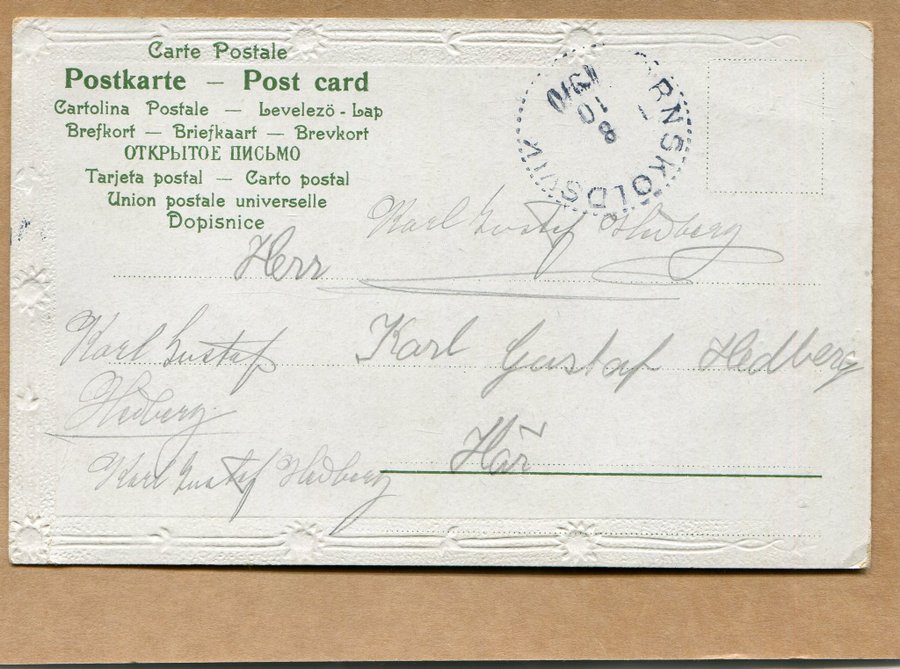 Carte Postale
Postkarte — Post card
Cartolina Postale — Levelezö - Lap
Brefkort — Briefkaart — Brevkort
ОТКРЫТОЕ ПИСЬМО
Tarjeta postal — Carto postal
Union postale universelle
Dopisnice
RNSKÖLDSVIK
1910
10
8
Karl Gustaf Hedberg
Herr
Karl Gustaf Hedberg
Karl Gustaf
Hedberg
Här
Karl Gustaf Hedberg